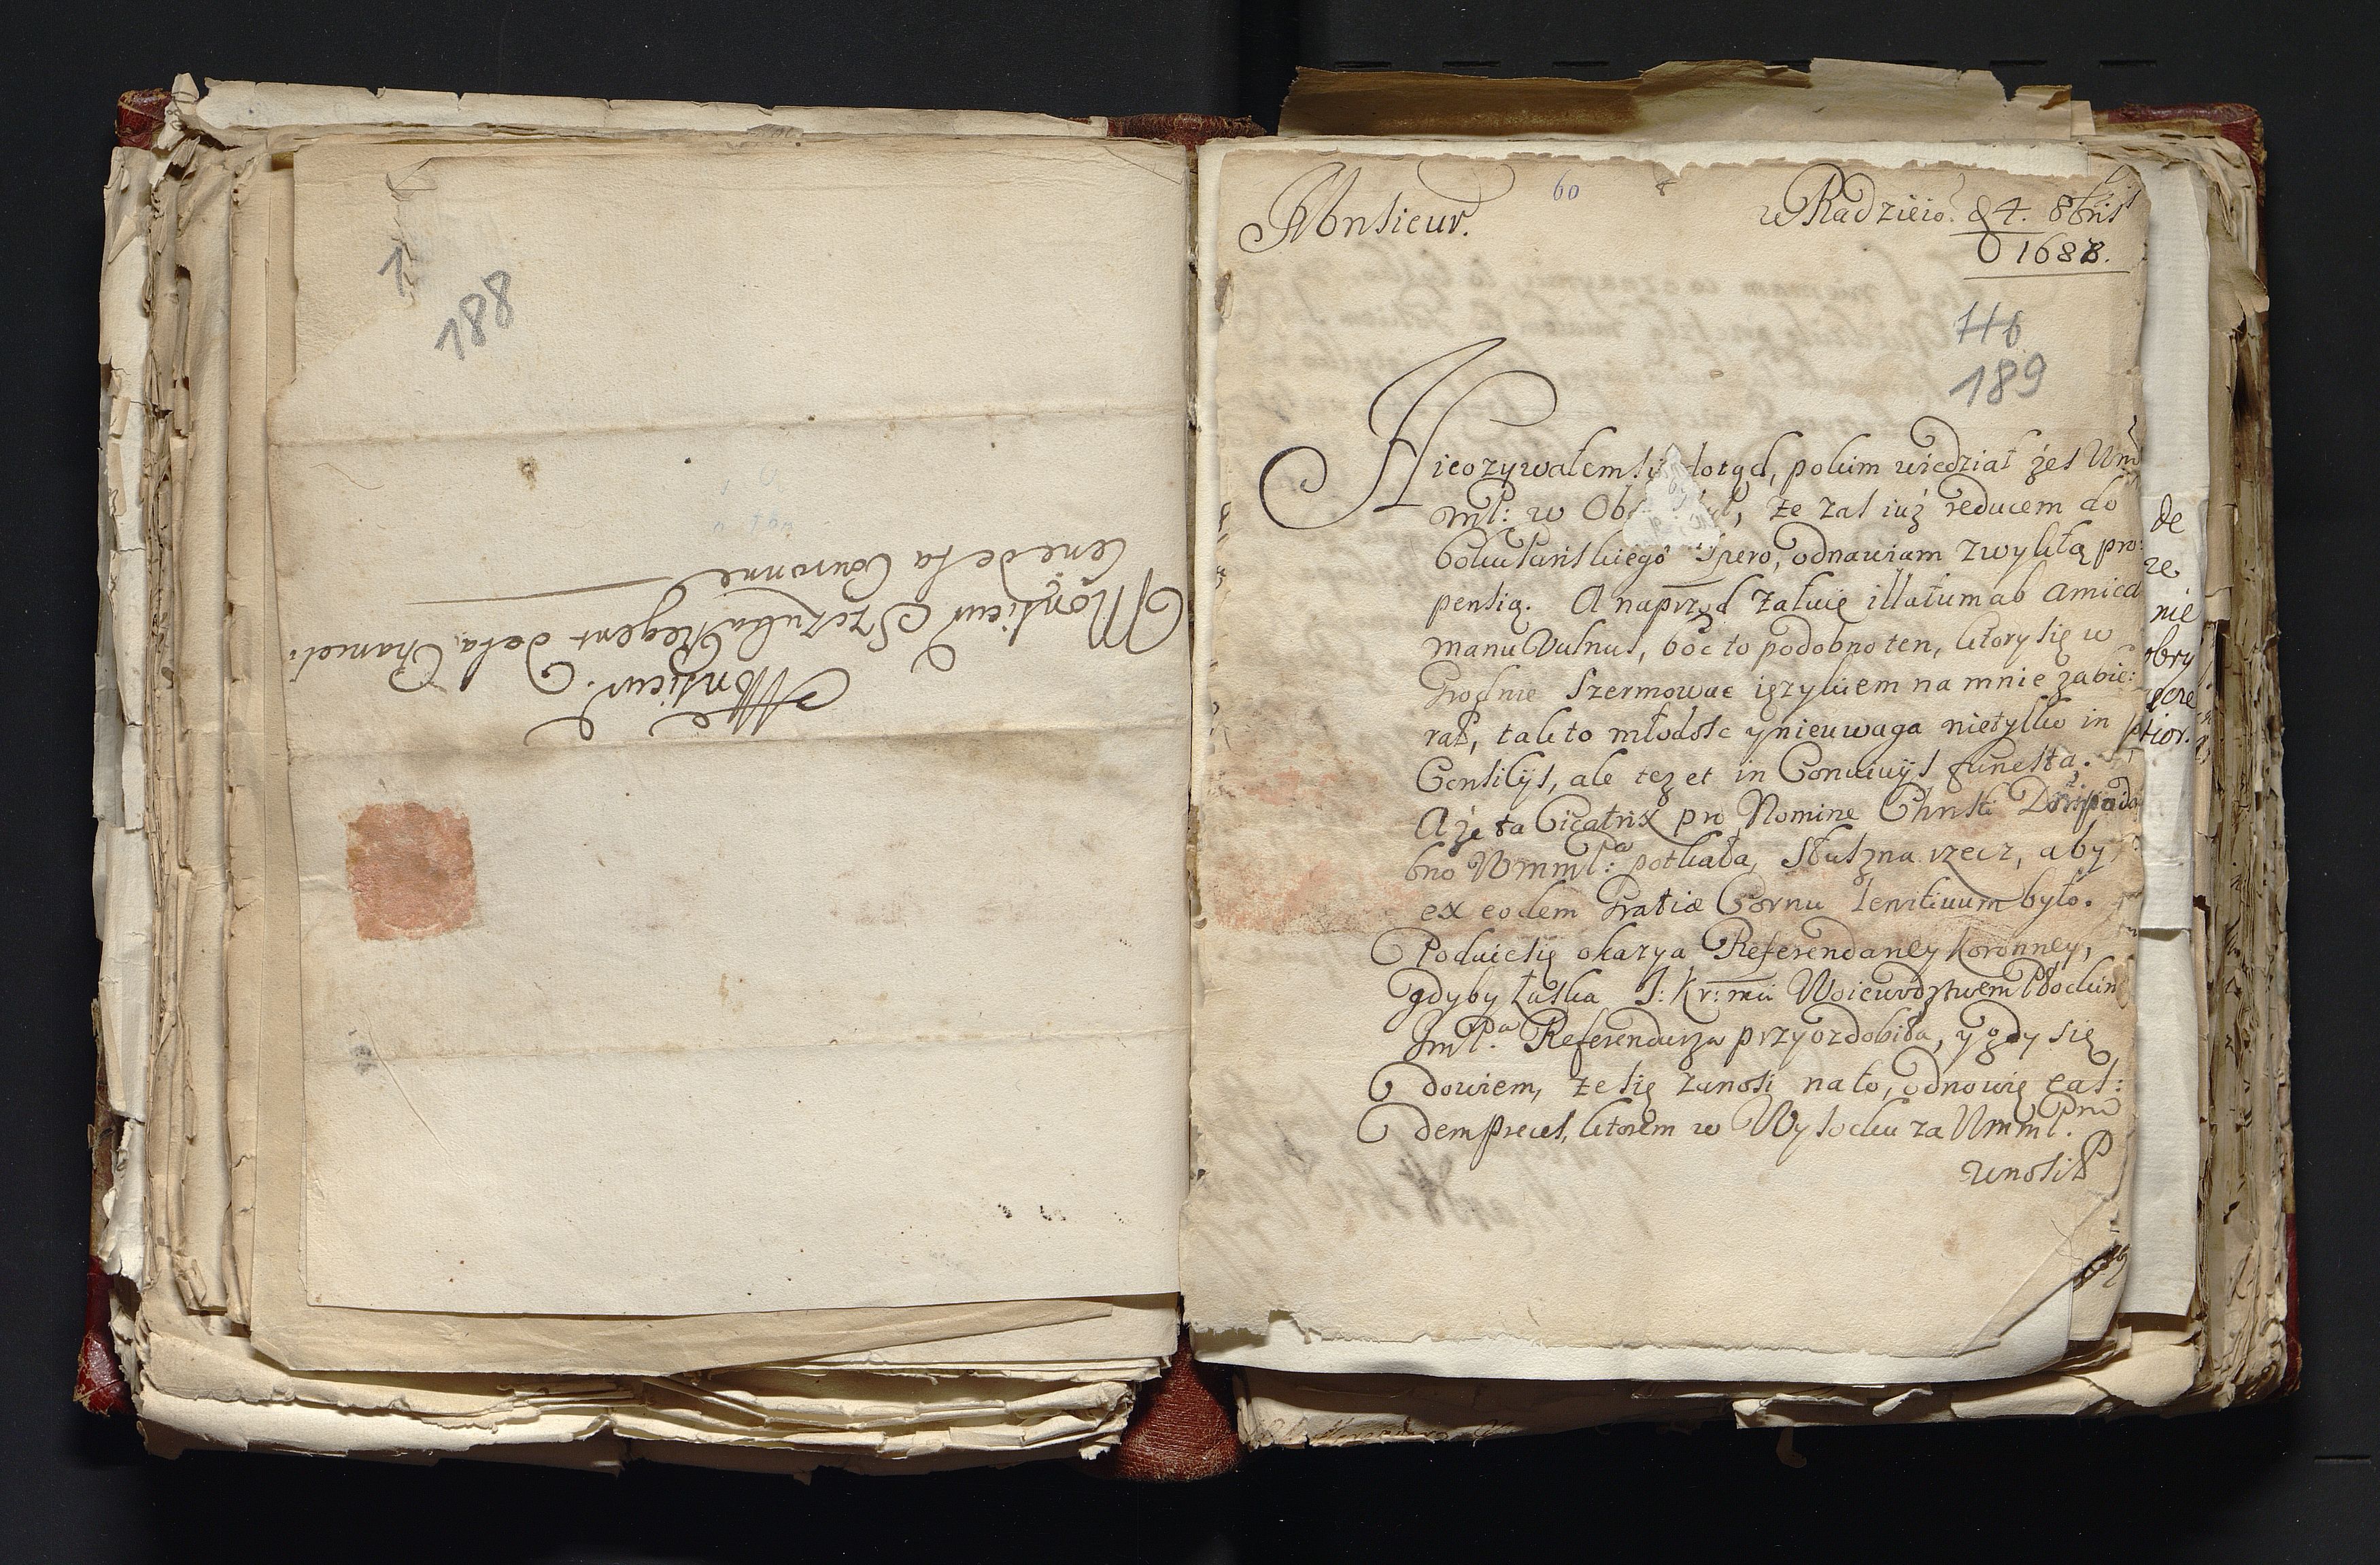 188
Monsieur.
Monsieur Szczuka Regent de la Chancel:
lerie de la Couronne
Monsieur.
60
w Radzieio. 24. 8bris
1688.
116
189
Nieozywałem się dotąd, pokim wiedział żes Wm
mś: w Ob, że zas iuż reducem do
spero, odnawiam zwykłą pro:
pensią. A naprzod załuię illatum ab amica
manu Vulnus, boć to podobno ten, ktory się w
Grodnie szermować ięzykiem na mnie zabie:
rał, tak to młodość y nieuwaga nietylko in
Consilijs, ale też et in Conuiuijs funesta.
A że ta Cicatrix pro Nomine Christi
bno Wmmś: potkała, słuszna rzecz, aby
ex eodem Gratiæ Cornu lenitiuum było.
Podaie się okazya Referendaryey Koronney,
gdyby łaska J: Kr: mci Woiewodztwem Płockim
Jmś. Pa Referendarza przyozdobiła, y gdy się
dowiem, że się zanosi na to, odnowię eas:
dem preces, ktorem w Wysocku za Wmmś. Pm
wnosił
de
ze
nie
obry
ptior.